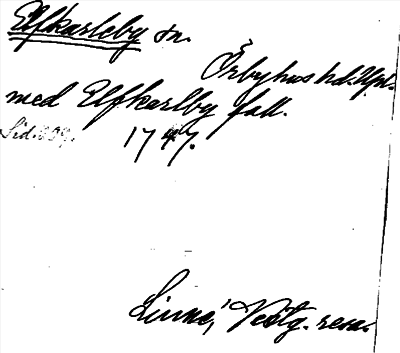 Elfkarleby sn.
Örbyhus hd. Upl.
med Elfkarlby fall.
Sid.
1747.
Linné, Västg. resa.